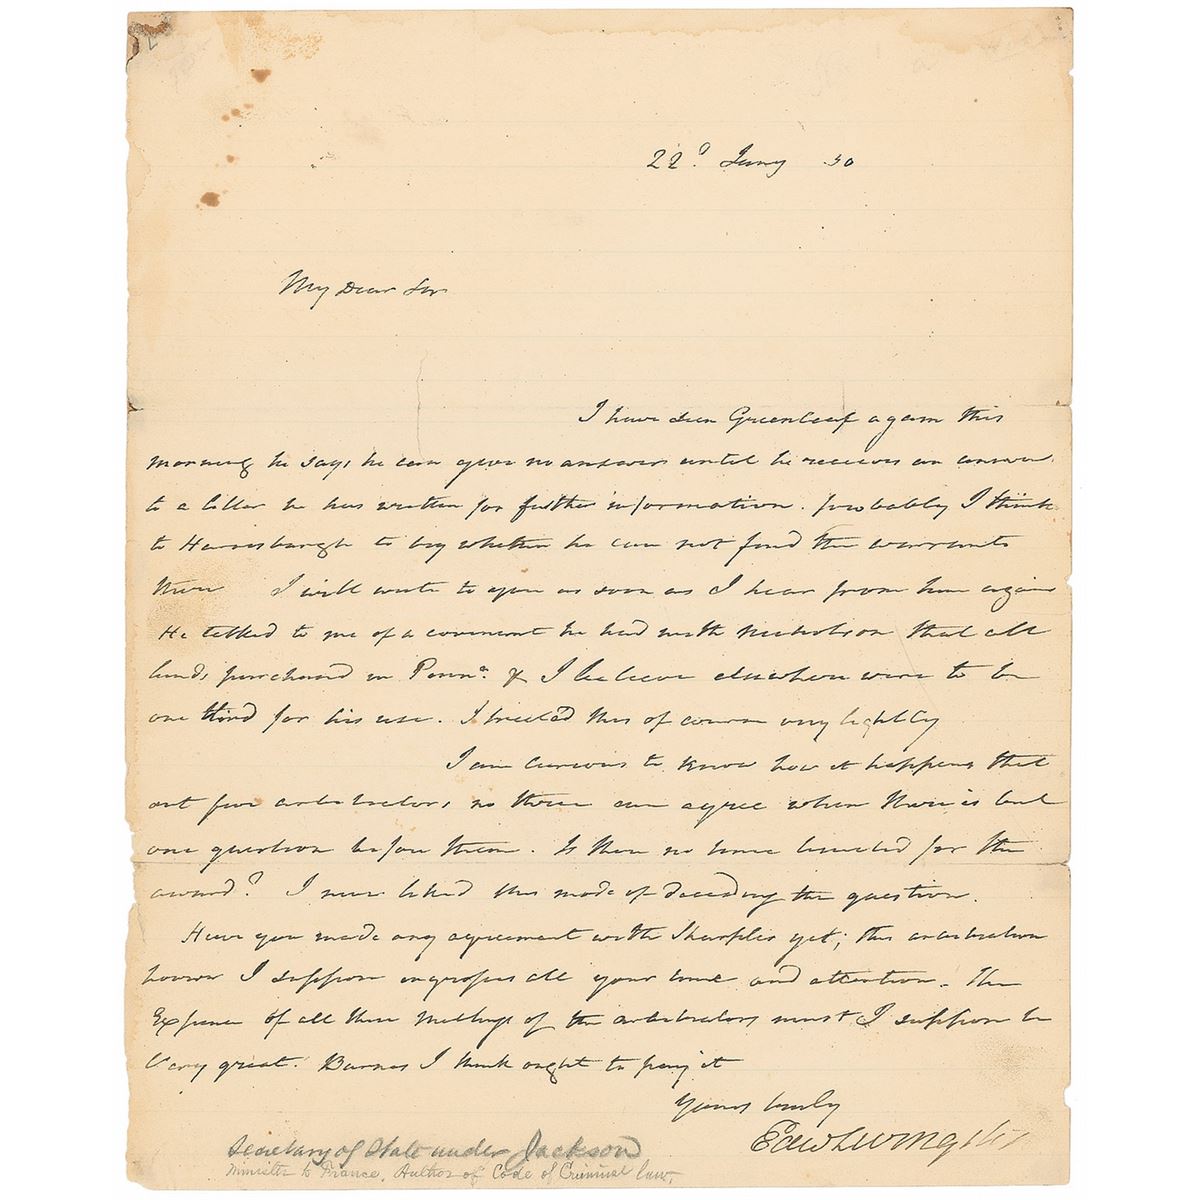 22d Jany 30
My Dear Sir
I have seen Greenleaf again this
morning he says he can give no answer until he receives an answer
to a letter he has written for further information. probably I think
to Harrisburgh to try whether he can not find the warrants
there I will write to you as soon as I hear from him again
He talked to me of a covenant he had with Nicholson that all
lands purchased in Penna. & I believe elsewhere were to be
one third for his use. I treated this of course very lightly
I am curious to know how it happens that
out five arbitrators, no three can agree when there is but
one question before them. Is there no time limited for the
award? I never liked this mode of deciding the question.
Have you made any agreement with Sharples yet; this arbitration
however I suppose engrosses all your time and attention. The
Expence of all these meetings of the arbitrators must I suppose be
very great. Barnes I think ought to pay it
Yours truly
Edw Livingston
Secretary of State under Jackson
Minister to France, Author of Code of Criminal law.